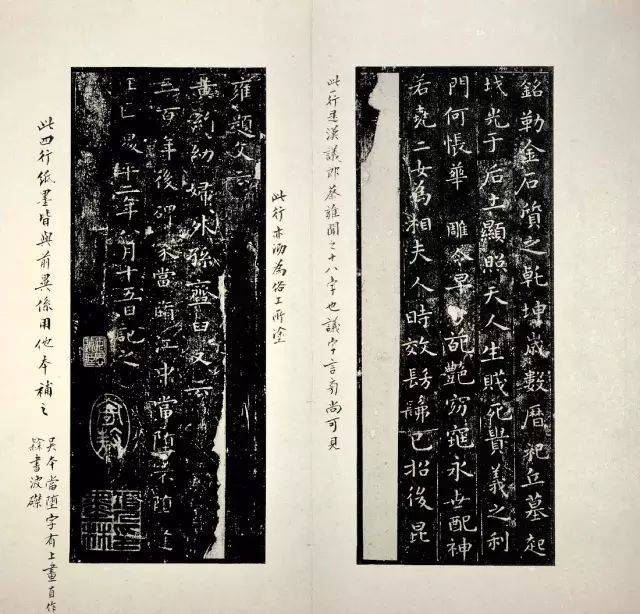 銘勒金石質之乾坤歲數曆祀丘墓起
墳光于后土顯照夭人生賤死貴義之利
門何悵華 雕零早 葩艷窈窕永世配神
若堯二女為相夫人時效髣髴已招後昆
此一行是漢議郎蔡雍聞之十八字也議字言旁尚可見
此行亦 為俗工所塗
雍題文云
黃絹幼婦外孫齏臼又云
三百年後碑冢當墮江中當墮不墮逢
王叵 二年八月十五日記之
此四行紙墨皆與前異係用他本補之
吳本當墮字有上畫自作
隸書波磔